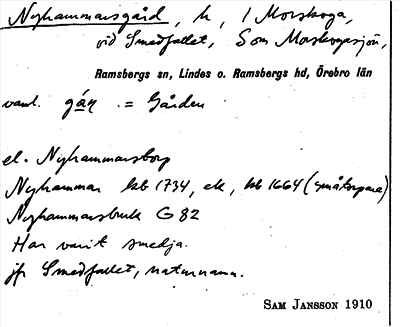 Nyhammarsgård, h, i Morskoga,
vid Smedfallet, S om Morskogasjön,
Ramsbergs sn, Lindes o. Ramsbergs hd, Örebro län
vanl. gáɳ = Gården
el. Nyhammarstorp
Nyhammar kb 1734, ek, kb 1664 (småtorpare)
Nyhammarsbruk G 82
Har varit smedja.
jfr Smedfallet, naturnamn.
SAM JANSSON 1910